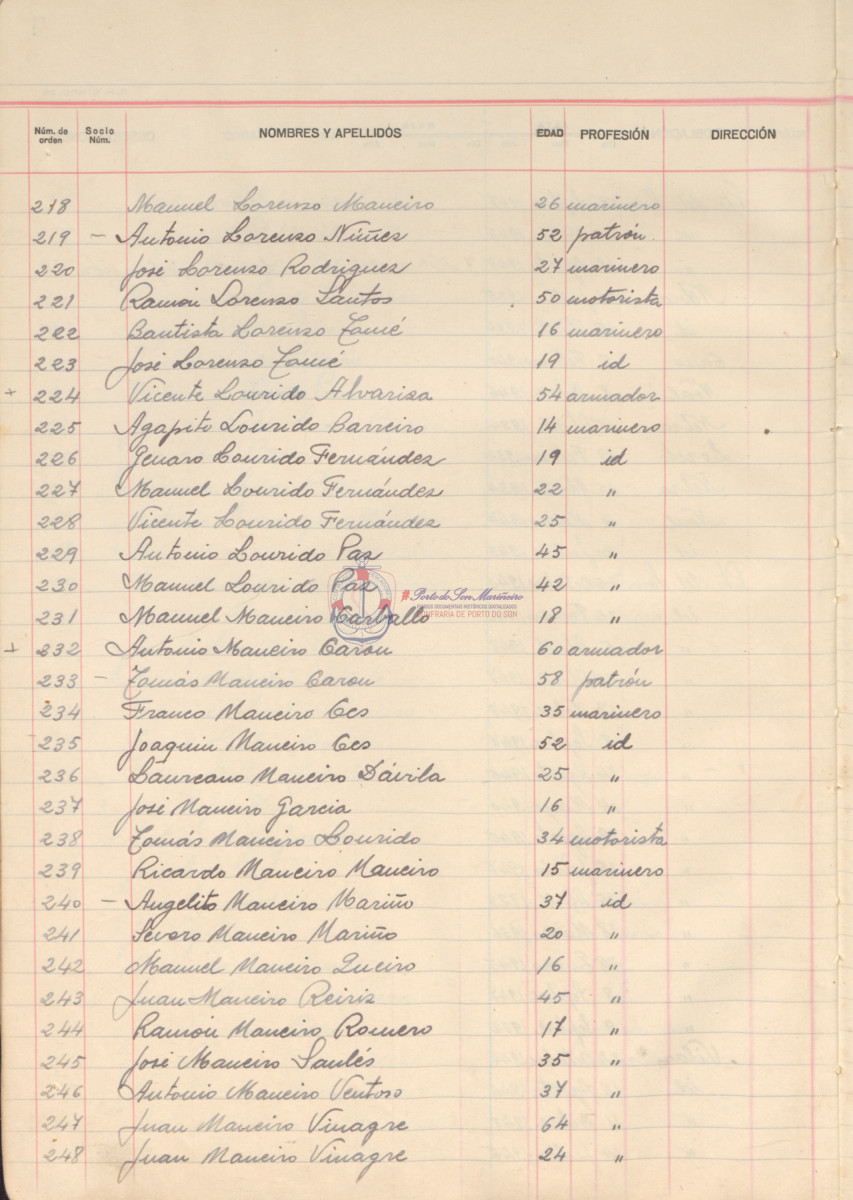 Núm. de orden Socio Núm. NOMBRES Y APELLIDOS EDAD PROFESIÓN DIRECCIÓN
218 Manuel Lorenzo Maneiro 26 marinero
219 - Antonio Lorenzo Núñez 52 patrón
220 José Lorenzo Rodriguez 27 marinero
221 Ramón Lorenzo Santos 50 motorista
222 Bautista Lorenzo Tomé 16 marinero
223 José Lorenzo Tomé 19 id
+ 224 Vicente Lourido Alvariza 54 armador
225 Agapito Lourido Barreiro 14 marinero
226 Genaro Lourido Fernández 19 id
227 Manuel Lourido Fernández 22 "
228 Vicente Lourido Fernández 25 "
229 Antonio Lourido Paz 45 "
230 Manuel Lourido Paz 42 "
#Porto do Son Mariñeiro
FONDOS DOCUMENTAIS HISTÓRICOS DIXITALIZADOS
231 Manuel Maneiro Carballo 18 "
CONFRARÍA DE PORTO DO SON
+ 232 Antonio Maneiro Carou 60 armador
233 - Tomás Maneiro Carou 58 patrón
234 Franco Maneiro Ces 35 marinero
235 Joaquin Maneiro Ces 52 id
236 Laureano Maneiro Dávila 25 "
237 José Maneiro Garcia 16 "
238 Tomás Maneiro Lourido 34 motorista
239 Ricardo Maneiro Maneiro 15 marinero
240 - Angelito Maneiro Mariño 37 id
241 Severo Maneiro Mariño 20 "
242 Manuel Maneiro Queiro 16 "
243 Juan Maneiro Reiriz 45 "
244 Ramón Maneiro Romero 17 "
245 José Maneiro Saulés 35 "
246 Antonio Maneiro Ventoso 37 "
247 Juan Maneiro Vinagre 64 "
248 Juan Maneiro Vinagre 24 "